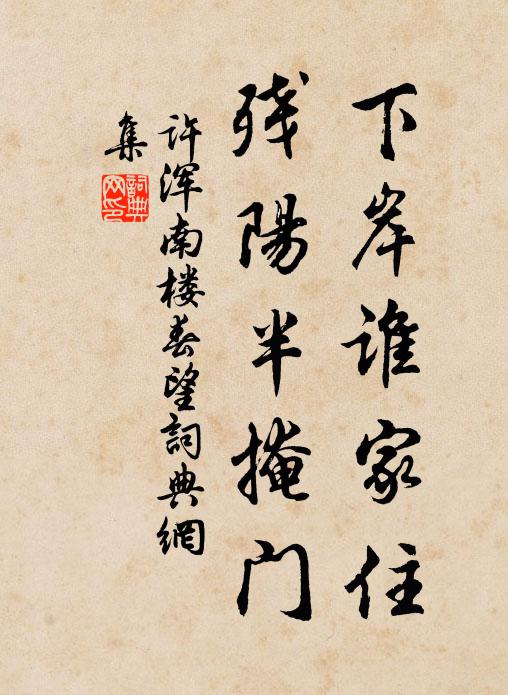 下岸谁家住
残陽半掩门
许浑南楼春望詞典網
集
詞典网印